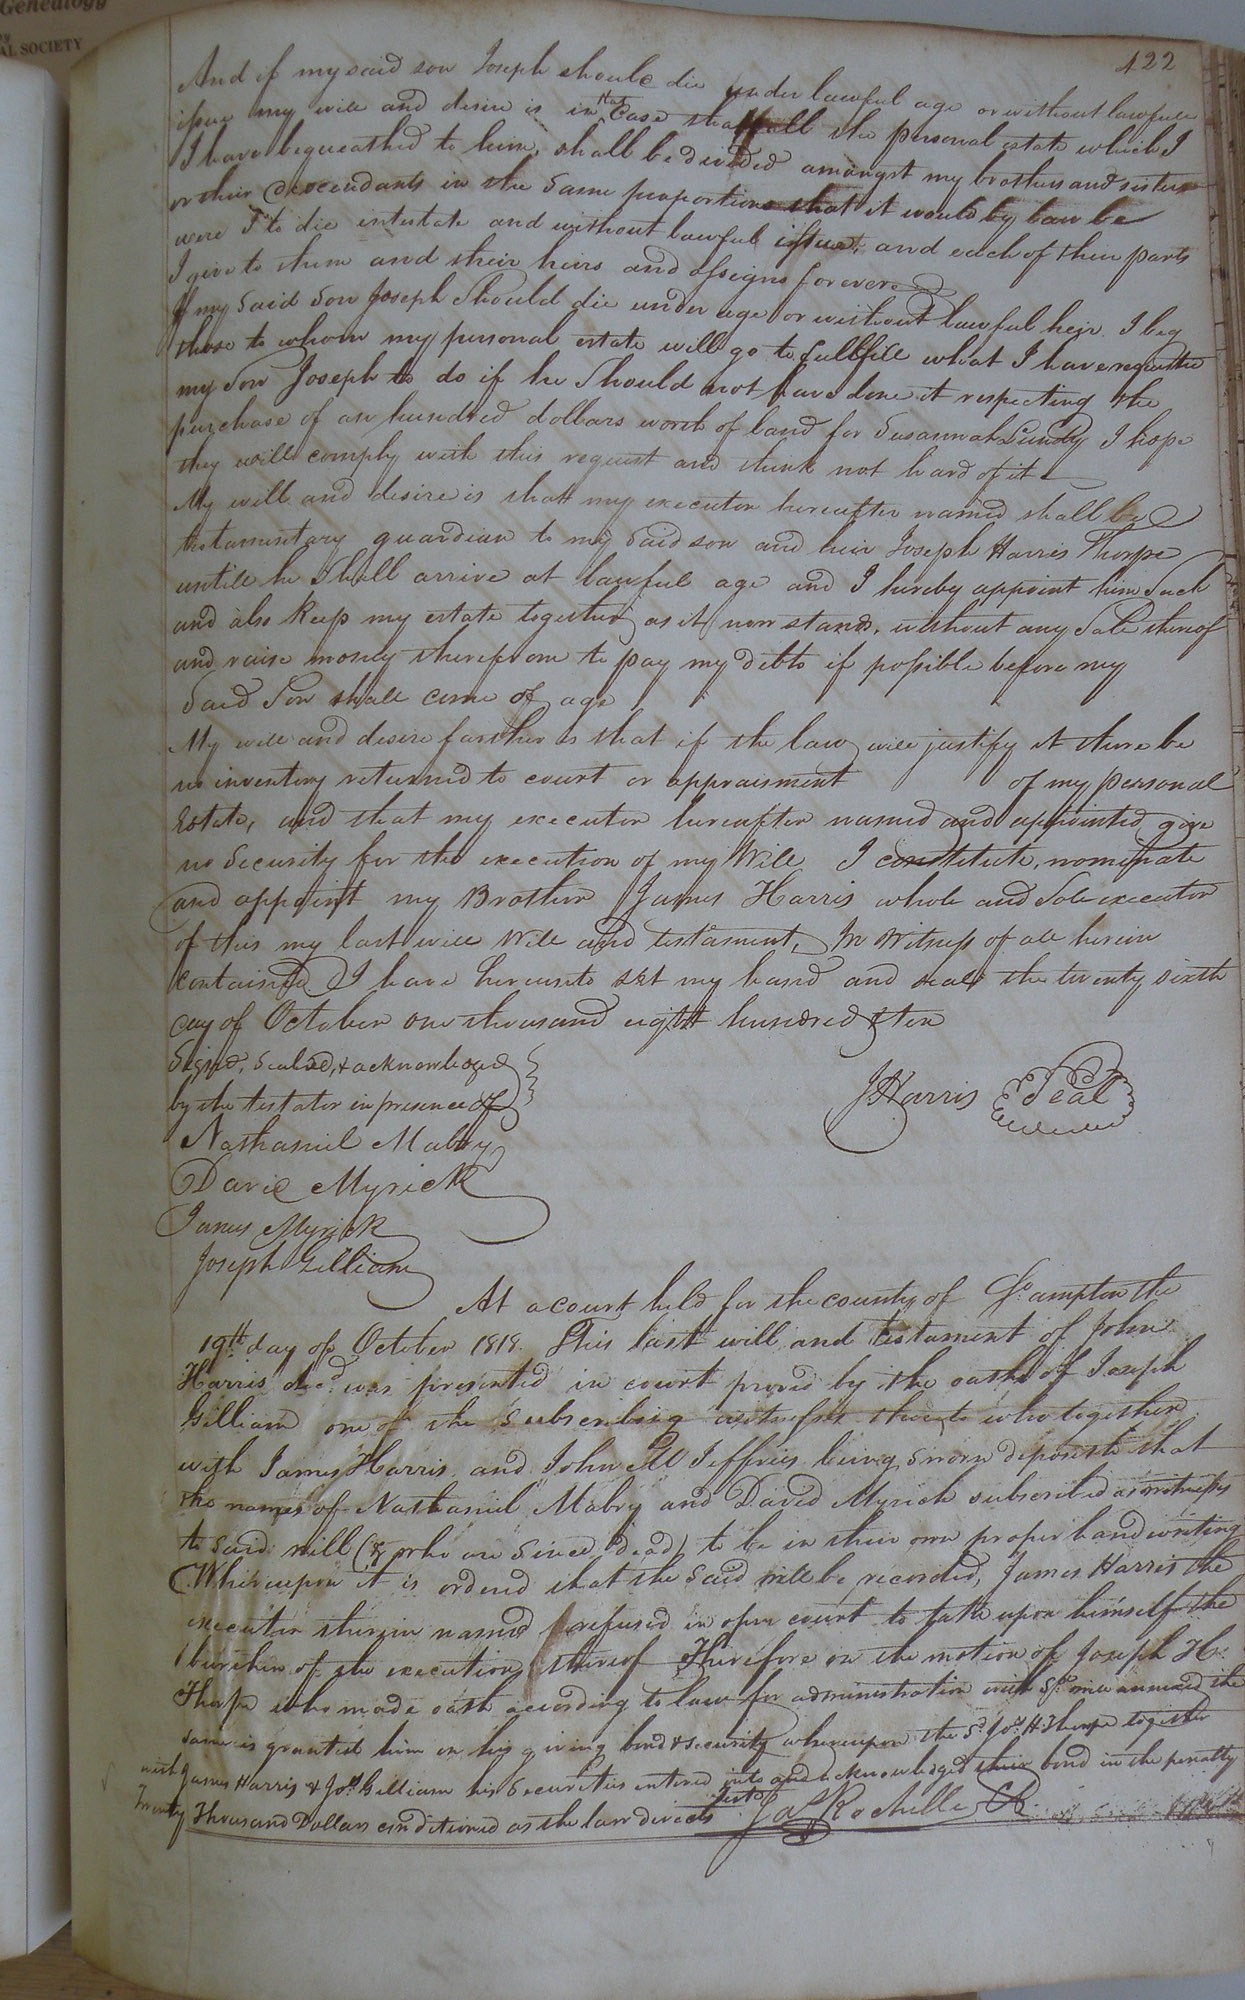 Genealogy
AL SOCIETY
422
And if my said son Joseph should die under lawful age or without lawfull
issue my will and desire is in that case that all the personal estate which I
I have bequeathed to him, shall be divided amongst my brothers and sisters
or their descendants in the same proportions that it would by law be
were I to die intestate and without lawful issue, and each of their parts
I give to them and their heirs and assigns forever
If my said son Joseph should die under age or without lawful heir I beg
those to whom my personal estate will go to fullfill what I have requested
my son Joseph to do if he should not have done it respecting the
purchase of an hundred dollars worth of land for Susannah Lundy I hope
they will comply with this request and think not hard of it
My will and desire is that my executor hereafter named shall be
testamentary guardian to my said son and heir Joseph Harris Thorpe
untill he shall arrive at lawful age and I hereby appoint him such
and also keep my estate together as it now stands, without any sale thereof
and raise money therefrom to pay my debts if possible before my
said son shall come of age
My will and desire farther is that if the law will justify it there be
no inventory returned to court or appraisment of my personal
Estate, and that my executor hereafter named and appointed give
no security for the execution of my Will I constitute, nominate
and appoint my Brother James Harris whole and sole executor
of this my last will Will and testament, In Witness of all herein
contained I have hereunto set my hand and seal the twenty sixth
day of October one thousand eight hundred & ten
Signed, Sealed, & acknowledged
by the testator in presence of
J Harris Seal
Nathaniel Mabry
David Myrick
James Myrick
Joseph Gilliam
At a court held for the county of So.ampton the
19th day of October 1818. This last will and testament of John
Harris decd. was presented in court proved by the oath of Joseph
Gilliam one of the subscribing witnesses thereto who together
with James Harris and John W Jeffries being sworn deposeth that
the names of Nathaniel Mabry and David Myrick subscribed as witnesses
to said will (& who are since dead) to be in their own proper hand writing
Whereupon it is ordered that the said will be recorded, James Harris the
executor therein named refused in open court to take upon himself the
burthen of the execution thereof Therefore on the motion of Joseph H.
Thorpe who made oath according to law for administration with sd. will annexed the
same is granted him on his giving bond & security whereupon the sd. Jos. H Thorpe together
with James Harris & Jos. Gilliam his securities entered into and acknowledged their bond in the penalty
Twenty Thousand Dollars conditioned as the law directs Teste Jas Rochelle